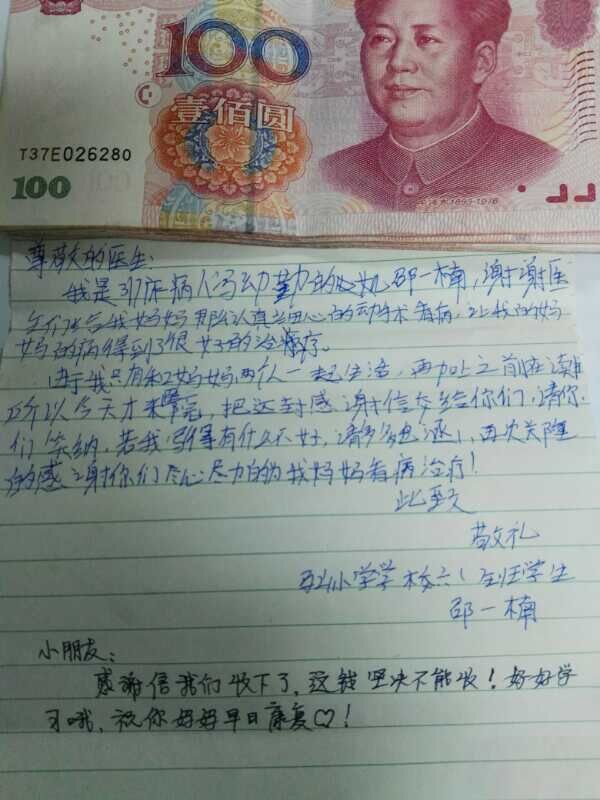 100
壹佰圆
T37E026280
100
毛泽东 1893-1976
尊敬的医生:
我是37床病人冯幼勤的女儿邵一楠,谢谢医
生们给我妈妈那么认真细心的动手术看病,让我的妈
妈的病得到了很好的治疗。
由于我只有和妈妈两个人一起生活,再加上之前在读书
所以今天才来医院,把这封感谢信交给你们,请你
们笑纳,若我写得有什么不好,请多多包涵,再次
的感谢你们尽心尽力的为我妈妈看病治疗!
此致
敬礼
小学学校六(1)班学生
邵一楠
小朋友:
感谢信我们收下了,这钱坚决不能收!好好学
习哦,祝你妈妈早日康复♡!